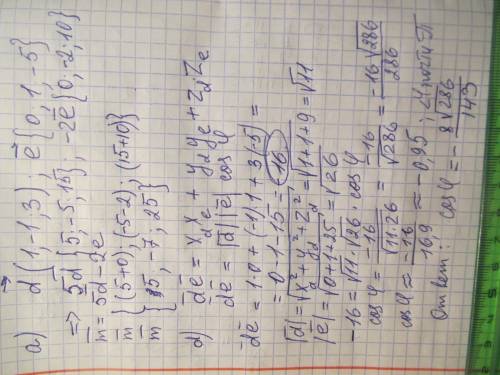 а) d{1,-1,3}, e{0,1,-5}
=> 5d{5;-5;15}; -2e{0;-2;10}
m = 5d-2e
m{(5+0);(-5-2);(15+10)}
m{5,-7;25}
d) de = x_d x_e + y_d y_e + z_d z_e
de = |d||e| cos φ
de = 1·0+(-1)·1+3(-5) =
= 0-1-15 = -16
|d| = √x_d²+y_d²+z_d² = √1+1+9 = √11
|e| = √0+1+25 = √26
-16 = √11·√26·cos φ
cos φ = -16/√11·26 = -16/√286 = -16√286/286
cos φ = -16/169 ≈ -0,95
Ответ: cos φ = -8√286/143